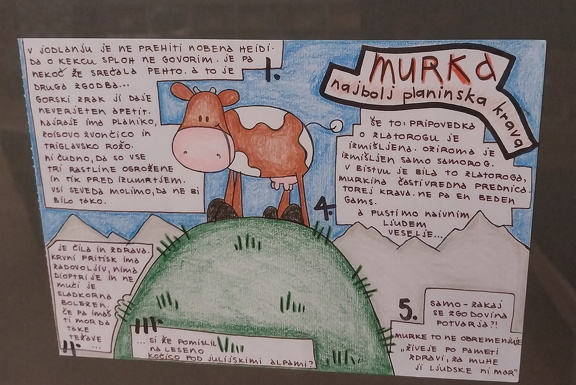 MURKA
najbolj planinska krava
V JODLANJU JE NE PREHITI NOBENA HEIDI.
DA O KEKCU SPLOH NE GOVORIM. JE PA
NEKOČ ŽE SREČALA PEHTO. A TO JE
DRUGA ZGODBA...
1.
GORSKI ZRAK JI DAJE
NEVERJETEN APETIT.
NAJRAJE IMA PLANIKO,
ZOISOVO ZVONČICO IN
TRIGLAVSKO ROŽO.
NI ČUDNO, DA SO VSE
TRI RASTLINE OGROŽENE
IN TIK PRED IZUMRTJEM.
VSI SEVEDA MOLIMO, DA NE BI
BILO TAKO.
JE ČILA IN ZDRAVA.
KRVNI PRITISK IMA
ZADOVOLJIV, NIMA
DIOPTRIJE IN NE
MUČI JE
SLADKORNA
BOLEZEN.
ČE PA IMAŠ
TI MORDA
TAKE
TEŽAVE
...
... SI ŽE POMISLIL
NA LESENO
KOČICO POD JULIJSKIMI ALPAMI?
4.
ŠE TO: PRIPOVEDKA
O ZLATOROGU JE
IZMIŠLJENA. OZIROMA JE
IZMIŠLJEN SAMO SAMOROG.
V BISTVU JE BILA TO ZLATOROGA,
MURKINA ČASTIVREDNA PREDNICA.
TOREJ KRAVA. NE PA EN BEDEN
GAMS.
A PUSTIMO NAIVNIM
LJUDEM
VESELJE...
5.
SAMO - ZAKAJ
SE ZGODOVINA
POTVARJA?!
MURKE TO NE OBREMENJUJE
"ŽIVEJO PO PAMETI
ZDRAVI, ZA MUHE
JI LJUDSKE NI MAR"